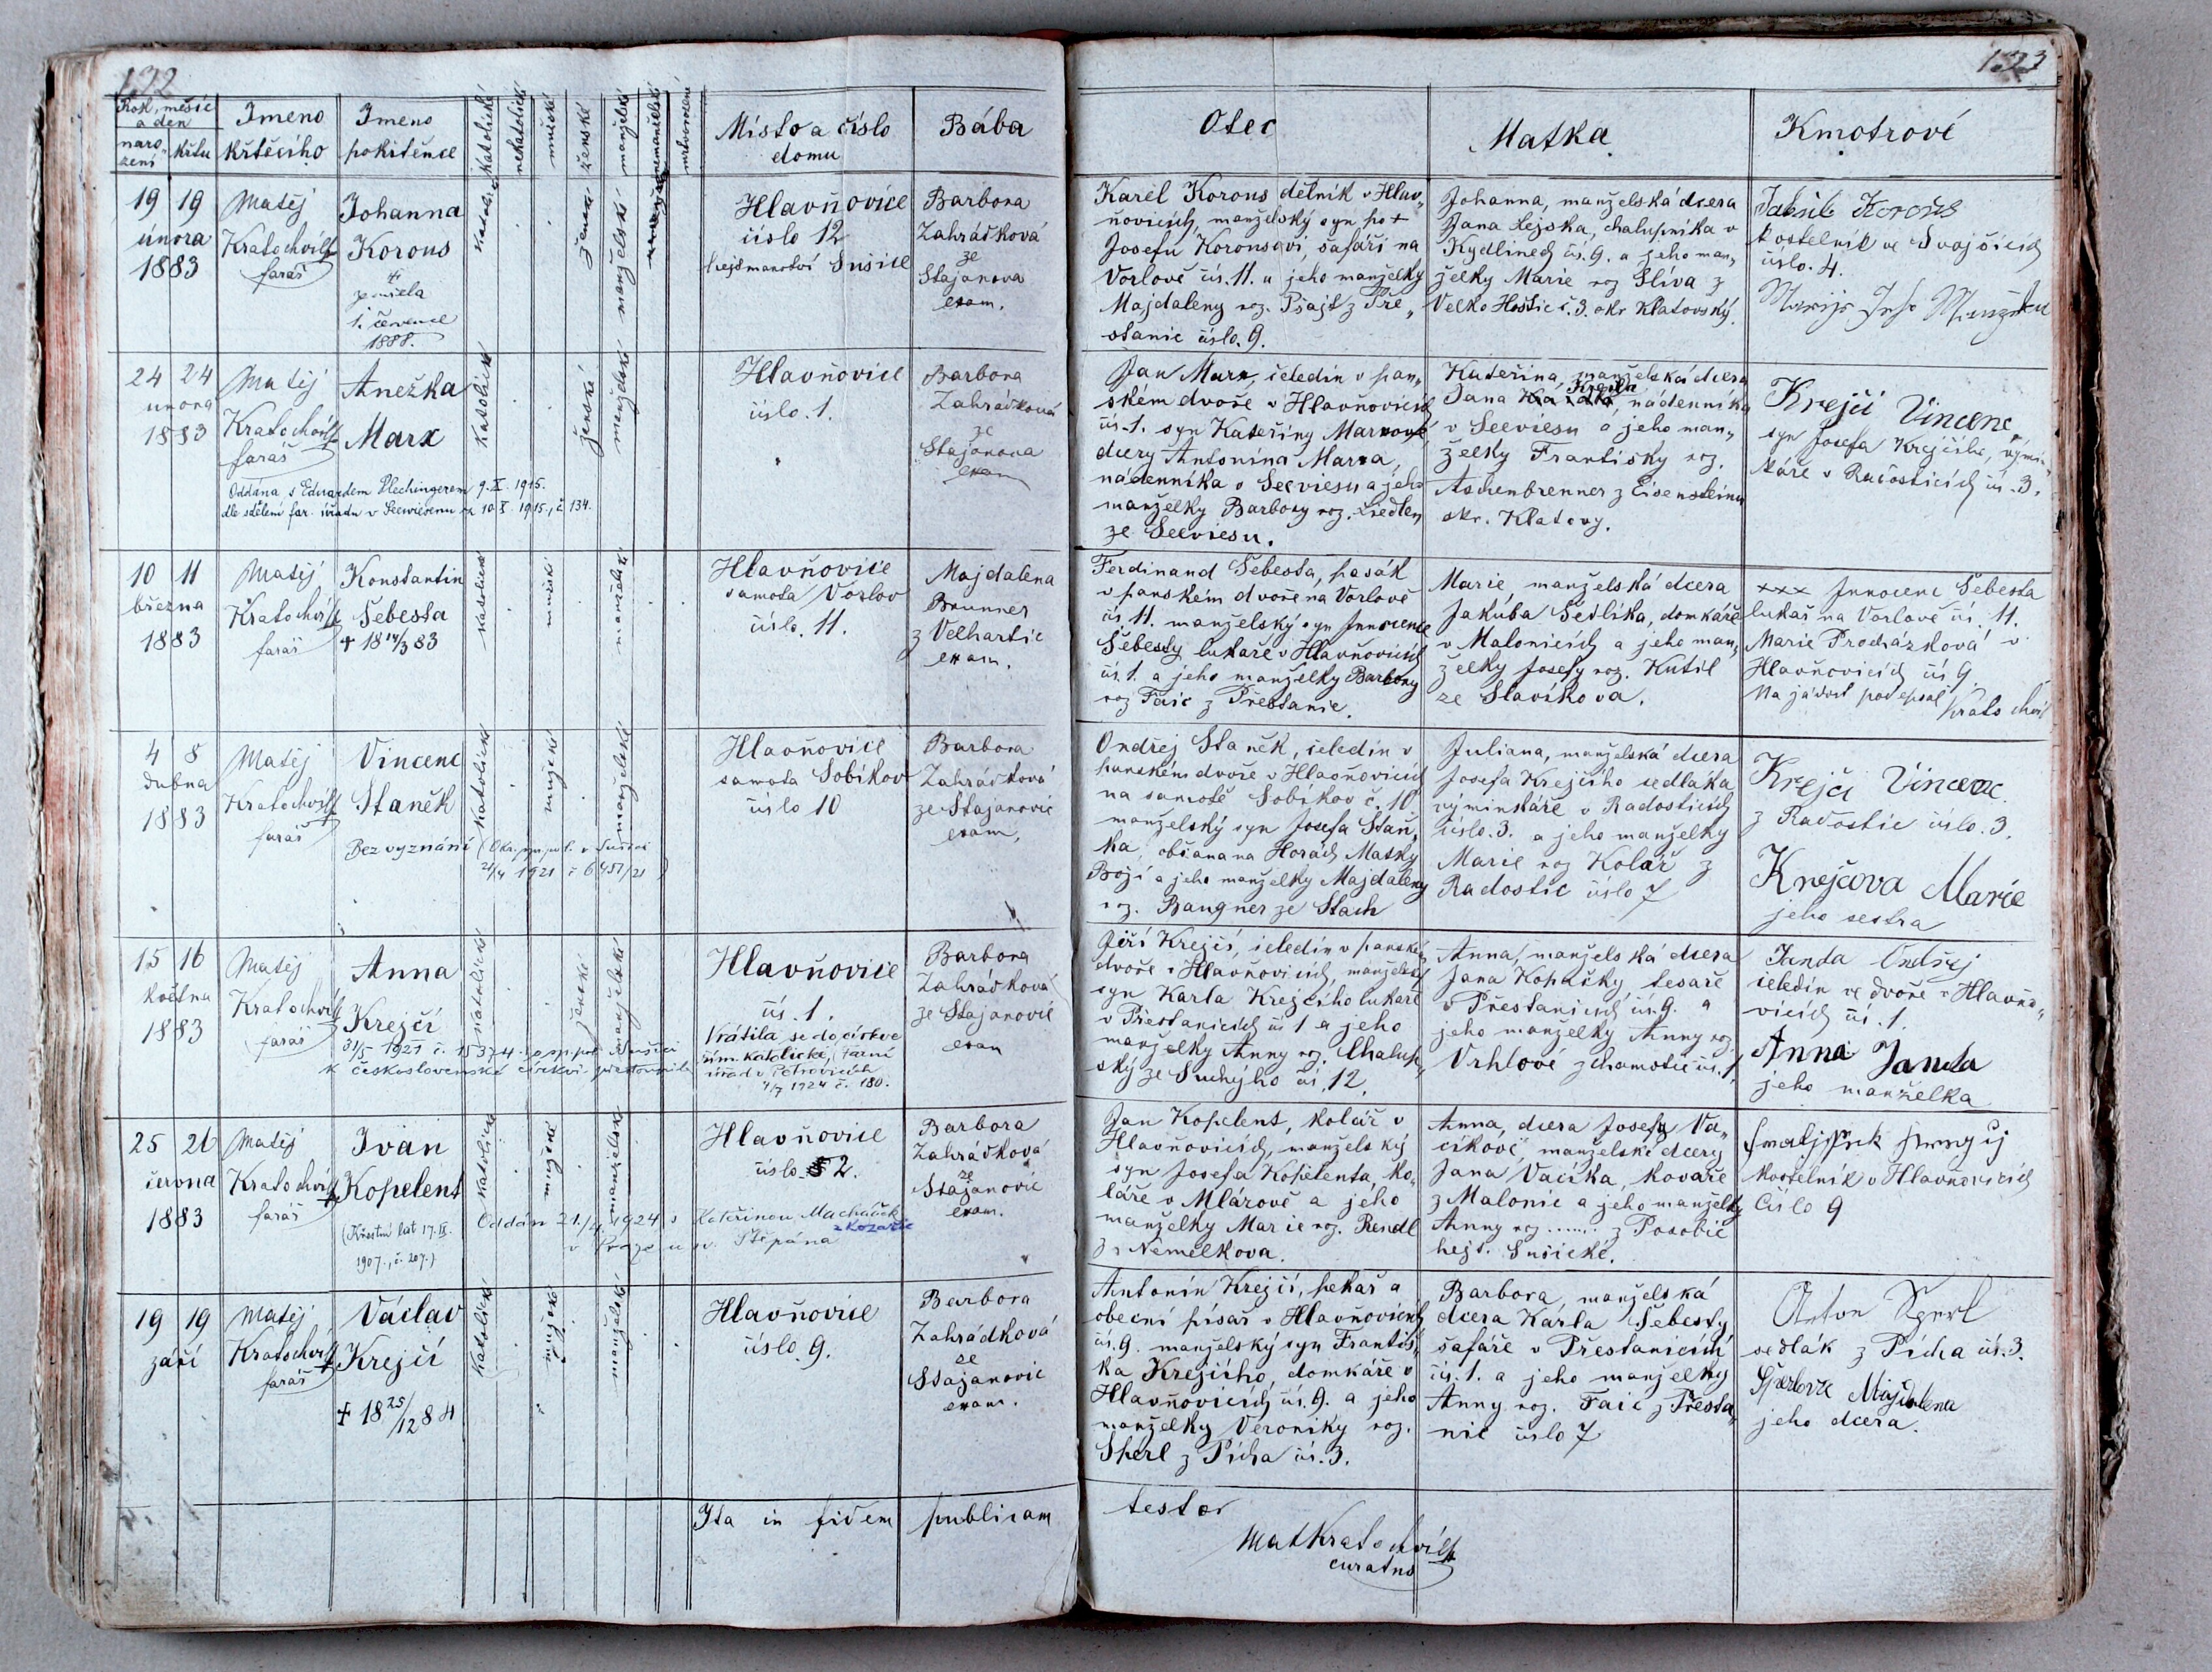 132
Rok, měsíc
a den
naro-
zení
křtu
Jmeno
křtícího
Jmeno
pokřtěnce
katolické
nekatolické
mužské
ženské
manželské
nemanželské
mrtvorozené
Místo a číslo
domu
Bába
19 19
února
1883
Matěj
Kratochvíl
farář
Johanna
Korous
†
zemřela
1. července
1888.
ženské
manželské
Hlavňovice
číslo 12
hejtmanství Sušice
Barbora
Zahrádková
ze
Stajanova
exam.
24 24
února
1883
Matěj
Kratochvíl
farář
Anežka
Marx
katolické
ženské
manželské
Hlavňovice
číslo. 1.
Barbora
Zahrádková
ze
Stajanova
exam
Oddána s Eduardem Plechingerem 9. X. 1915.
dle sdělení far. úřadu v Seewiesenu z 10. X. 1915, č 134.
10 11
března
1883
Matěj
Kratochvíl
farář
Konstantin
Šebesta
† 18 14/3 83
katolické
mužské
manželské
Hlavňovice
samota Vorlov
číslo. 11.
Majdalena
Brunner
z Velhartic
exam.
4 8
dubna
1883
Matěj
Kratochvíl
farář
Vincenc
Staněk
Bez vyznání (Okr. pol. v Sušici
21/4 1921 č 6451/21)
katolické
mužské
manželské
Hlavňovice
samota Sobíkov
číslo 10
Barbora
Zahrádková
ze Stajanovic
exam.
15 16
května
1883
Matěj
Kratochvíl
farář
Anna
Krejčí
31/5 1921 č. 15374. pol. Sušici
k československé církvi přestoupila
katolické
ženské
manželské
Hlavňovice
čís. 1.
Vrátila se do církve
řím. katolické, farní
úřad v Petrovicích
4/7 1924 č. 180.
Barbora
Zahrádková
ze Stajanovic
exam
25 26
června
1883
Matěj
Kratochvíl
farář
Ivan
Kopelent
(Křestní list 17. III.
1907, č. 207.)
katolické
mužské
manželské
Hlavňovice
číslo 2.
Oddán 21./4. 1924 s Kateřinou Macháček
z Kozařic
v Praze u sv. Štěpána
Barbora
Zahrádková
ze
Stajanovic
exam.
19 19
září
Matěj
Kratochvíl
farář
Václav
Krejčí
† 18 25/12 84
katolické
mužské
manželské
Hlavňovice
číslo. 9.
Barbora
Zahrádková
ze
Stajanovic
exam.
Ita in fidem publicam
133
Otec
Matka
Kmotrové
Karel Korous dělník v Hlav„
ňovicích, manželský syn po †
Josefu Korousovi, šafáři na
Vorlově čís. 11. a jeho manželky
Majdaleny roz. Psajt z Pře„
stanic číslo. 9.
Johanna, manželská dcera
Jana Lejska, chalupníka v
Kydlinech čís. 9. a jeho man„
želky Marie roz Slíva z
Velko Hoštic č. 3. okr Klatovský.
Jakub Korous
kostelník ve Svojšicích
číslo. 4.
Marije
Jan Marx, čeledín v pan„
ském dvoře v Hlavňovicích
čís. 1. syn Kateřiny Marxové,
dcery Antonína Marxa,
nádenníka v Seeviesu a jeho
manželky Barbory roz. Liedlen
ze Seeviesu.
Kateřina, manželská dcera
Jana, nádenníka
v Seeviesu a jeho man„
želky Františky roz.
Aschenbrenner z Eisensteinu
okr. Klatovy.
Krejčí Vincenc
syn Josefa Krejčího, výmin„
káře v Radosticích čís. 3.
Ferdinand Šebesta, pasák
v panském dvoře na Vorlově
čís. 11. manželský syn Innocence
Šebesty lukaře v Hlavňovicích
čís. 1. a jeho manželky Barbory
roz Faic z Přestanic.
Marie, manželská dcera
Jakuba Sedlíka, domkáře
v Malonicích a jeho man„
želky Josefy roz. Kutil
ze Slavíkova.
xxx Innocenc Šebesta
lukař na Vorlově čís. 11.
Marie Procházková v
Hlavňovicích čís 9.
Na žádost podepsal Kratochvíl
Ondřej Staněk, čeledín v
panském dvoře v Hlavňovicích
na samotě Sobíkov č. 10
manželský syn Josefa Staň„
ka, občana na Horách Matky
Boží a jeho manželky Majdaleny
roz. Baugner ze Stach
Juliana, manželská dcera
Josefa Krejčího sedláka
výminkáře v Radosticích
číslo. 3. a jeho manželky
Marie roz Kolář z
Radostic číslo 7
Krejčí Vincenc
z Radostic číslo. 3.
Krejčova Marie
jeho sestra
Jiří Krejčí, čeledín v panském
dvoře v Hlavňovicích, manželský
syn Karla Krejčího lukaře
v Přestanicích čís 1 a jeho
manželky Anny roz. Chalup„
ský ze Suchýho čís. 12.
Anna, manželská dcera
Jana Kopačky, tesaře
v Přestanicích čís. 9. a
jeho manželky Anny roz.
Vrhlové z Chamotic čís. 1.
Janda Ondřej
čeledín ve dvoře v Hlavňo„
vicích čís. 1.
Anna Janda
jeho manželka
Jan Kopelent, kolář v
Hlavňovicích, manželský
syn Josefa Kopelenta, ko„
láře v Mlázově a jeho
manželky Marie roz. Rendl
z Nemelkova.
Anna, dcera Josefy Va„
cíkové, manželské dcery
Jana Vacíka, kováře
z Malonic a jeho manželky
Anny roz ....... z Posobic
hejt. Sušické.
kostelník v Hlavňovicích
Číslo 9
Antonín Krejčí, pekař a
obecní písař v Hlavňovicích
čís. 9. manželský syn Františ„
ka Krejčího, domkáře v
Hlavňovicích čís. 9. a jeho
manželky Veroniky roz.
Sperl z Pícha čís. 3.
Barbora, manželská
dcera Karla Šebesty
šafáře v Přestanicích
čís. 1. a jeho manželky
Anny roz. Faic z Přesta„
nic číslo 7
Anton Sperl
sedlák z Pícha čís. 3.
Majdalena
jeho dcera.
testor
Mat Kratochvíl
curatus